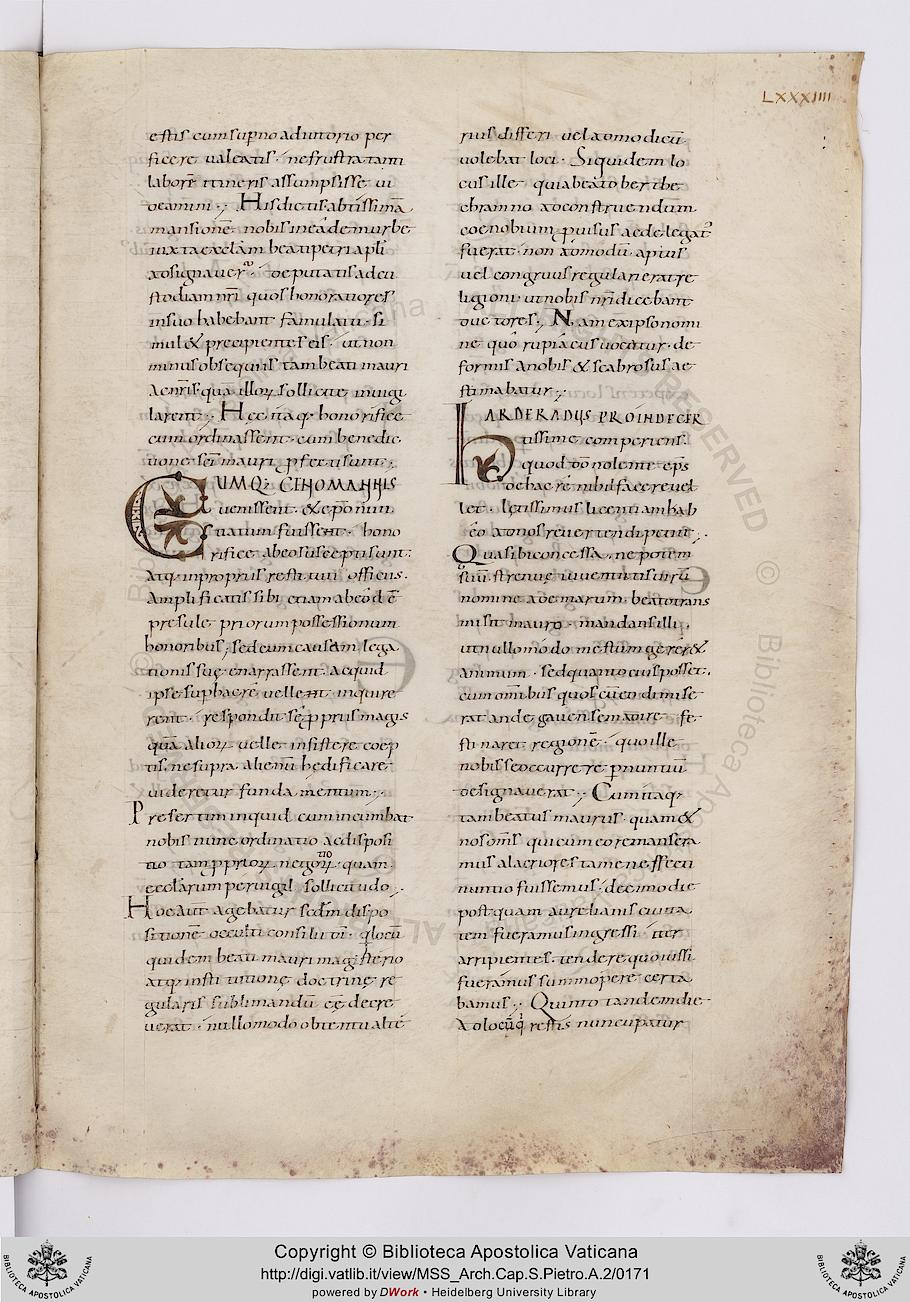 LXXXIIII
estis cum supno adiutorio per
ficere ualeatis · ne frustra tam
laborē itineris assumpsisse ui
deamini ·, His dictis abtissimā
mansionē nobis in eadem urbe
iuxta exclam beati petri apli
ad signauer̄ · deputatis ad cu
stodiam nr̄i quos honoratiores
in suo habebant famulatu · si
mul & precipientes eis · ut non
minus obsequiis tam beati mauri
ac nr̄is qua illoꝝ sollicite inuigi
larent ·, Hec itaq· honorifice
cum ordinassent · cum benedic
tione sc̄i mauri ꝓfecti sunt ·,
CUMQ; CINOMANNIS
uenissent · & ep̄o ninu
uatum fuissent · hono
rifice ab eo suscepti sunt:
Atq· in propriis restituti officiis·
Amplificatis sibi etiam ab eod̄ē
presule priorum possessionum
honoribus; sed cum causam lega
tionis suę enarrassent · ac quid
ipse sup hac rē uellent inquire
rent · respondit sē ꝓpriis magis
quā alioꝝ uelle insistere coep
tis, ne supra alienū hędificare
uideretur fundamentum ·,
Presertim inquid cum incumbat
nobis nunc ordinatio ac disposi
tio tam ꝓprioꝝ negotioꝝ · quam
ecclarum peruigil sollicitudo ·,
Hoc aut̄ agebatur sed̄m dispo
sitionē occulti consilii d̄i · q locū
quidem beati mauri magisterio
atq· institutione doctrinę re
gularis sublimandū eē decre
uerat · nullomodo obtentu alte
rius differi uel ad modicū
uolebat loci · Siquidem lo
cus ille quia beato berthe
chramno ad construendum
coenobium ꝓ uisus ac delegat᾽
fuerat · non admodū aptus
uel congruus regulari erat re
ligioni ut nobis nr̄i dicebant
ductores ·, Nam ex ipso nomi
ne quo rupiacus uocatur · de
formis a nobis & scabrosus ae
stimabatur ·,
HARDERADUS PROINDE CER
tissime comperiens ·
quod d̄o nolente eps̄
de hac rē nihil facere uel
let · lętissimus licentiam hab
eō ad nos reuertendi petiit ·,
Qua sibi concessa, nepotem
suū strenuę iuuentutis uirū
nomine ademarum · beato trans
misit mauro · mandans illi,
ut nullomodo mestum gerer&
animum · sed quanto cius posset ·,
cum omnibus quos cū eo dimise
rat andegauensem adire fe
stinaret regionē · quo ille
nobis se occurrere ꝓ nuntiū
designauerat ·, Cum itaq·
tam beatus maurus · quam &
nos om̄s qui cum eo remansera
mus alacriores tamen effecti
nuntio fuissemus · decimo die
postquam aurelianis ciuita
tem fueramus ingressi · iter
arripientes · tendere quo iussi
fuerāmus summopere certa
bamus ·, Quinto tandem die
Ad locū q restis nuncupatur
Copyright © Biblioteca Apostolica Vaticana
http://digi.vatlib.it/view/MSS_Arch.Cap.S.Pietro.A.2/0171
powered by DWork • Heidelberg University Library